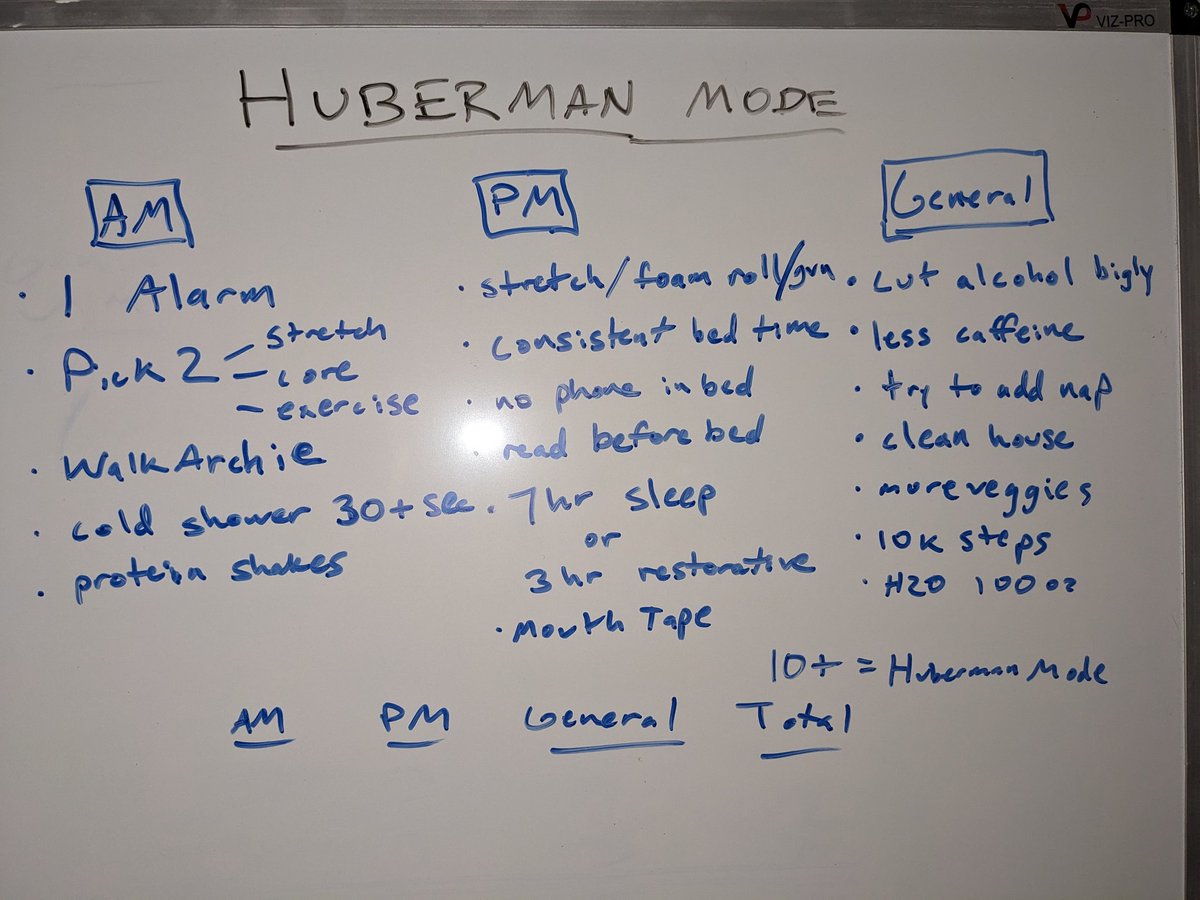 VP VIZ-PRO
HUBERMAN MODE
AM
· 1 Alarm
· Pick 2 - stretch
- core
- exercise
· Walk Archie
· cold shower 30+ sec
· protein shakes
PM
· stretch/foam roll/gun
· consistent bed time
· no phone in bed
· read before bed
· 7hr sleep
or
3 hr restorative
· Mouth Tape
General
· cut alcohol bigly
· less caffeine
· try to add nap
· clean house
· more veggies
· 10k steps
· H20 100 oz
10+ = Huberman Mode
AM PM General Total